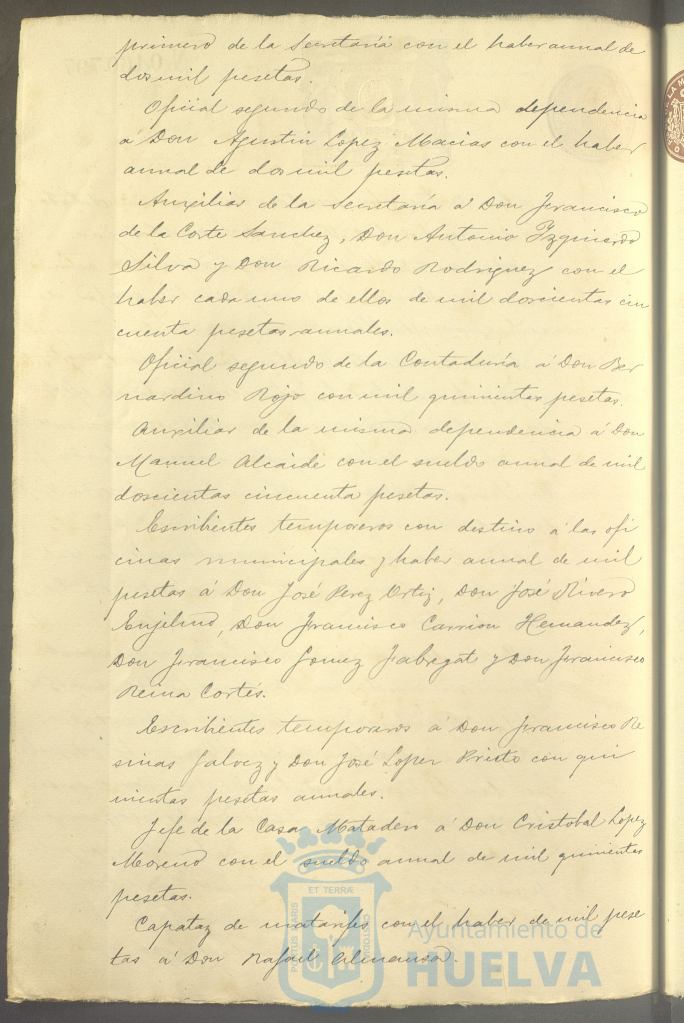 primero de la Secretaría con el haber annal de
dos mil pesetas.
Oficial segundo de la misma dependencia
á Don Agustin Lopez Macias con el haber
annal de dos mil pesetas.
Auxiliar de la Secretaría á Don Francisco
de la Corte Sanchez, Don Antonio Izquierdo
Silva y Don Ricardo Rodriguez con el
haber cada uno de ellos de mil doscientas cin
cuenta pesetas annales.
Oficial segundo de la Contaduría á Don Ber
nardino Rojo con mil quinientas pesetas.
Auxiliar de la misma dependencia á Don
Manuel Alcaide con el sueldo annal de mil
doscientas cincuenta pesetas.
Escribientes temporeros con destino á las ofi
cinas municipales y haber annal de mil
pesetas á Don José Perez Ortiz, Don José Rivero
Don Francisco Carrion Hernandez,
Don Francisco Gomez Fabregat y Don Francisco
Reina Cortés.
Escribientes temporeros á Don Francisco Re
sinas Galvez y Don José Lopez Prieto con qui
nientas pesetas annales.
Jefe de la Casa Matadero á Don Cristobal Lopez
Moreno con el sueldo annal de mil quinientas
pesetas.
Capataz de matarifes con el haber de mil pese
tas á Don Rafael Almansa.
ET TERRÆ
PORTUS MARIS
CUSTODIA
Ayuntamiento de
HUELVA